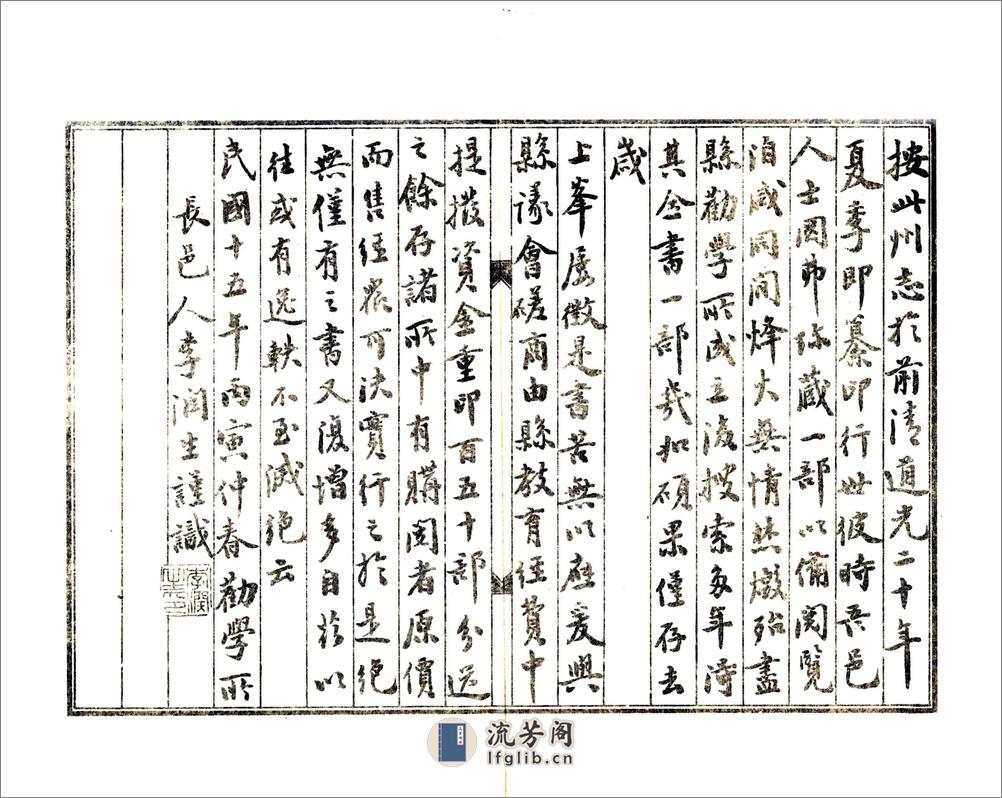 按此州志於前清道光二十年
夏季即纂印行世彼時吾邑
人士固弗珍藏一部以備閱覽
洎咸同間烽火無情焚燬殆盡
縣勸學所成立後搜索多年得
其全書一部幾如碩果僅存去
歲
上峯屢徵是書苦無以應爰與
縣議會磋商由縣教育經費中
提撥資金重印百五十部分送
之餘存諸所中有購閱者原價
而售經衆可決實行之於是絕
無僅有之書又復增多自茲以
往或有遺軼不至滅絕云
民國十五年丙寅仲春勸學所
長邑人李润生謹識
李潤
生印
流芳阁
lfglib.cn